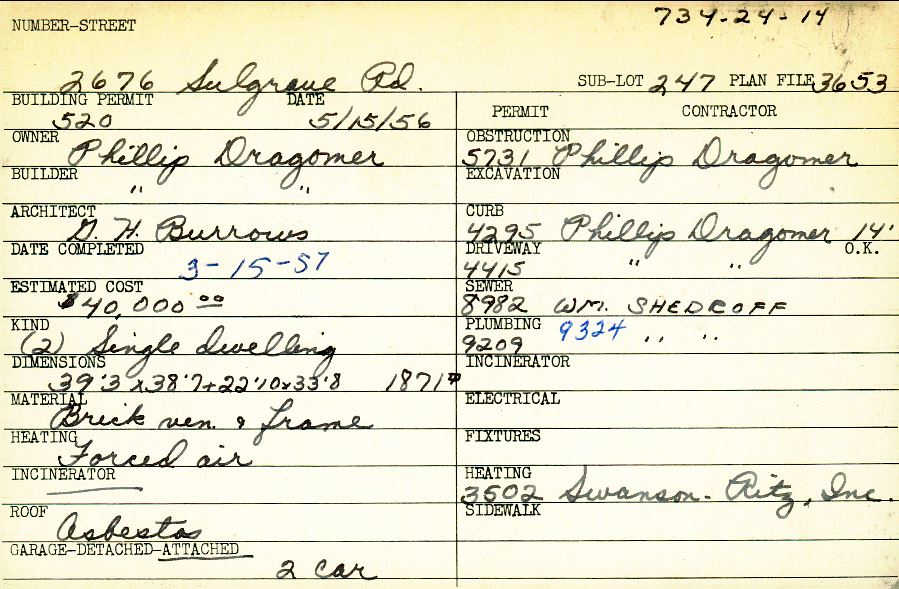 734-24-14
NUMBER-STREET
2676 Sulgrave Rd.
SUB-LOT 247 PLAN FILE 3653
BUILDING PERMIT DATE
520 5/15/56
OWNER
Phillip Dragomer
BUILDER
" "
ARCHITECT
D. H. Burrows
DATE COMPLETED
3-15-57
ESTIMATED COST
$40,000 00
KIND
(2) Single dwelling
DIMENSIONS
39'3 x 38'7 + 22'10 x 33'8 1871#
MATERIAL
Brick ven. & frame
HEATING
Forced air
INCINERATOR
ROOF
Asbestos
GARAGE-DETACHED-ATTACHED
2 car
PERMIT CONTRACTOR
OBSTRUCTION
5731 Phillip Dragomer
EXCAVATION
CURB
4295 Phillip Dragomer 14'
DRIVEWAY O.K.
4415 " "
SEWER
8982 WM. SHEDROFF
PLUMBING 9324
9209 " "
INCINERATOR
ELECTRICAL
FIXTURES
HEATING
3502 Swanson-Ritz, Inc.
SIDEWALK